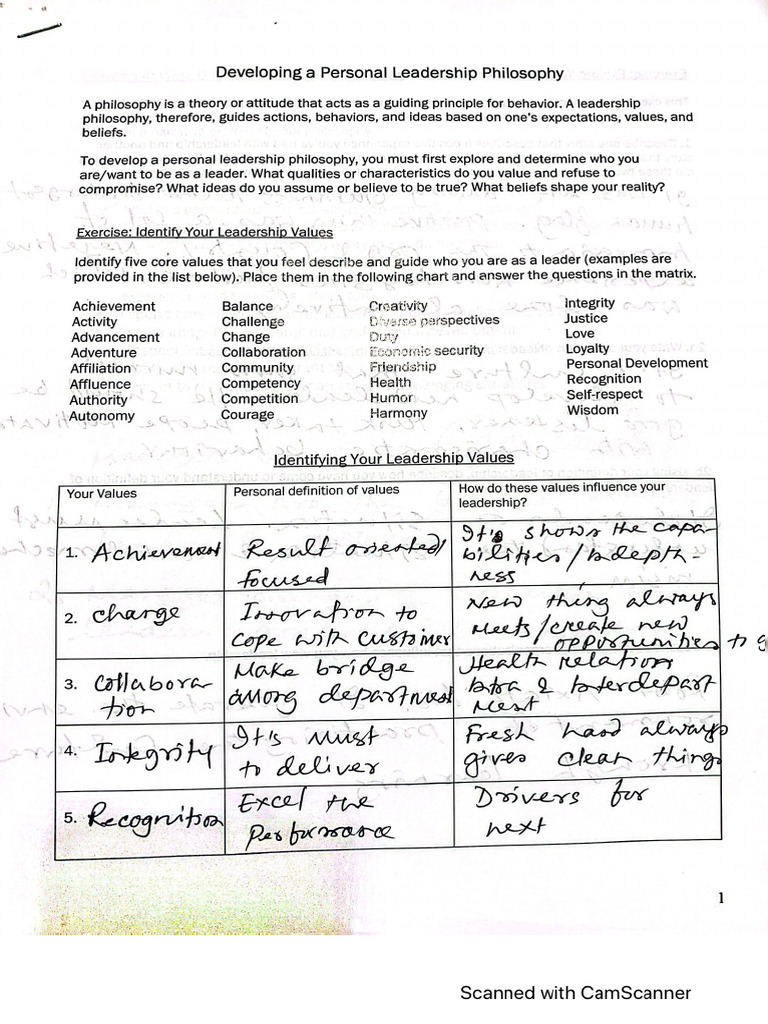 Developing a Personal Leadership Philosophy
A philosophy is a theory or attitude that acts as a guiding principle for behavior. A leadership
philosophy, therefore, guides actions, behaviors, and ideas based on one's expectations, values, and
beliefs.
To develop a personal leadership philosophy, you must first explore and determine who you
are/want to be as a leader. What qualities or characteristics do you value and refuse to
compromise? What ideas do you assume or believe to be true? What beliefs shape your reality?
Exercise: Identify Your Leadership Values
Identify five core values that you feel describe and guide who you are as a leader (examples are
provided in the list below). Place them in the following chart and answer the questions in the matrix.
Achievement Balance Creativity Integrity
Activity Challenge Diverse perspectives Justice
Advancement Change Duty Love
Adventure Collaboration Economic security Loyalty
Affiliation Community Friendship Personal Development
Affluence Competency Health Recognition
Authority Competition Humor Self-respect
Autonomy Courage Harmony Wisdom
Identifying Your Leadership Values
Your Values Personal definition of values How do these values influence your
leadership?
1. Achievement Result oriented/ It's shows the capa-
focused bilities/Indepth-
ness
2. Change Innovation to New thing always
cope with customer Meets/create new
opportunities to
3. Collabora- Make bridge Health relation
tion among department Intra & Interdepart
ment
4. Integrity It's must Fresh hand always
to deliver gives clean things
5. Recognition Excel the Drivers for
Performance next
1
Scanned with CamScanner